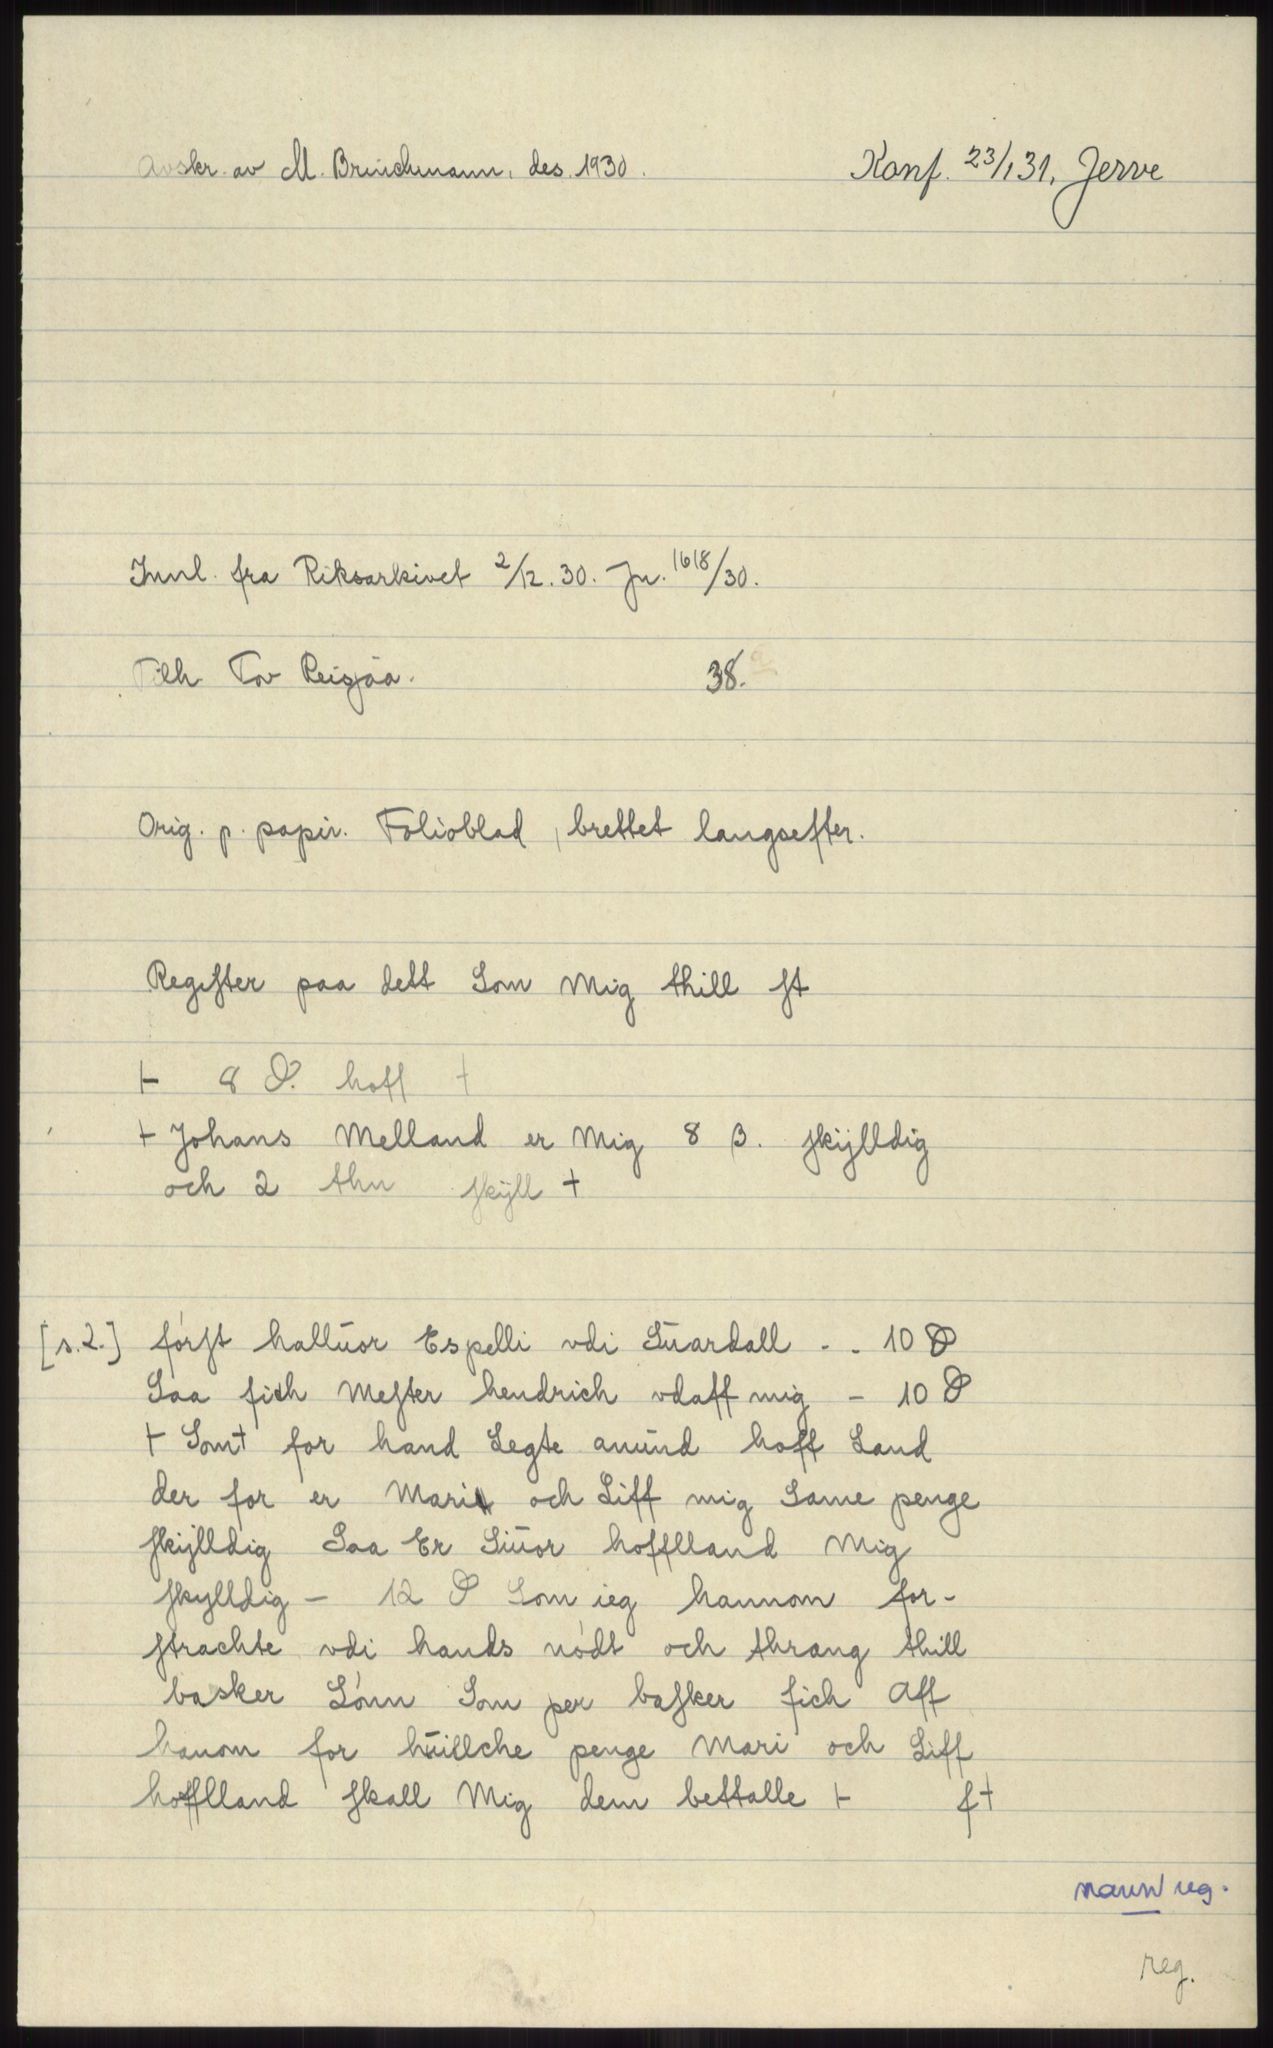 Avskr. av M. Brinchmann, des. 1930. Konf. 23/1 31, Jerve
Innl. fra Riksarkivet 2/12. 30. Jn. 1618/30.
Tilh Tov Reisjåa. 38.
Orig. p. papir. Folioblad, brettet langsefter.
Regifter paa dett Som Mig thill ft
⊢ 8 ₰. hoff +
+ Johans Melland er Mig 8 β. fkÿlldig
och 2 thn fkÿll +
[s. 2.] fórft hallŭor Espelli vdi Sŭardall - - 10 ₰
Saa fich Mefter hendrich vdaff mig - 10 ₰
⊢ Som+ for hand Legte amŭnd hoff Land
der for er Mari och Liff mig Same penge
fkÿlldig Saa Er Siŭor hoffland Mig
fkylldig - 12 ₰ Som ieg hannom for-
ftrachte vdi hands nódt och thrang thill
basker Lónn Som per bafker fich Aff
hanom for hŭillche penge Mari och Liff
hoffland fkall Mig dem bettalle ⊢ f+
navn reg.
reg.